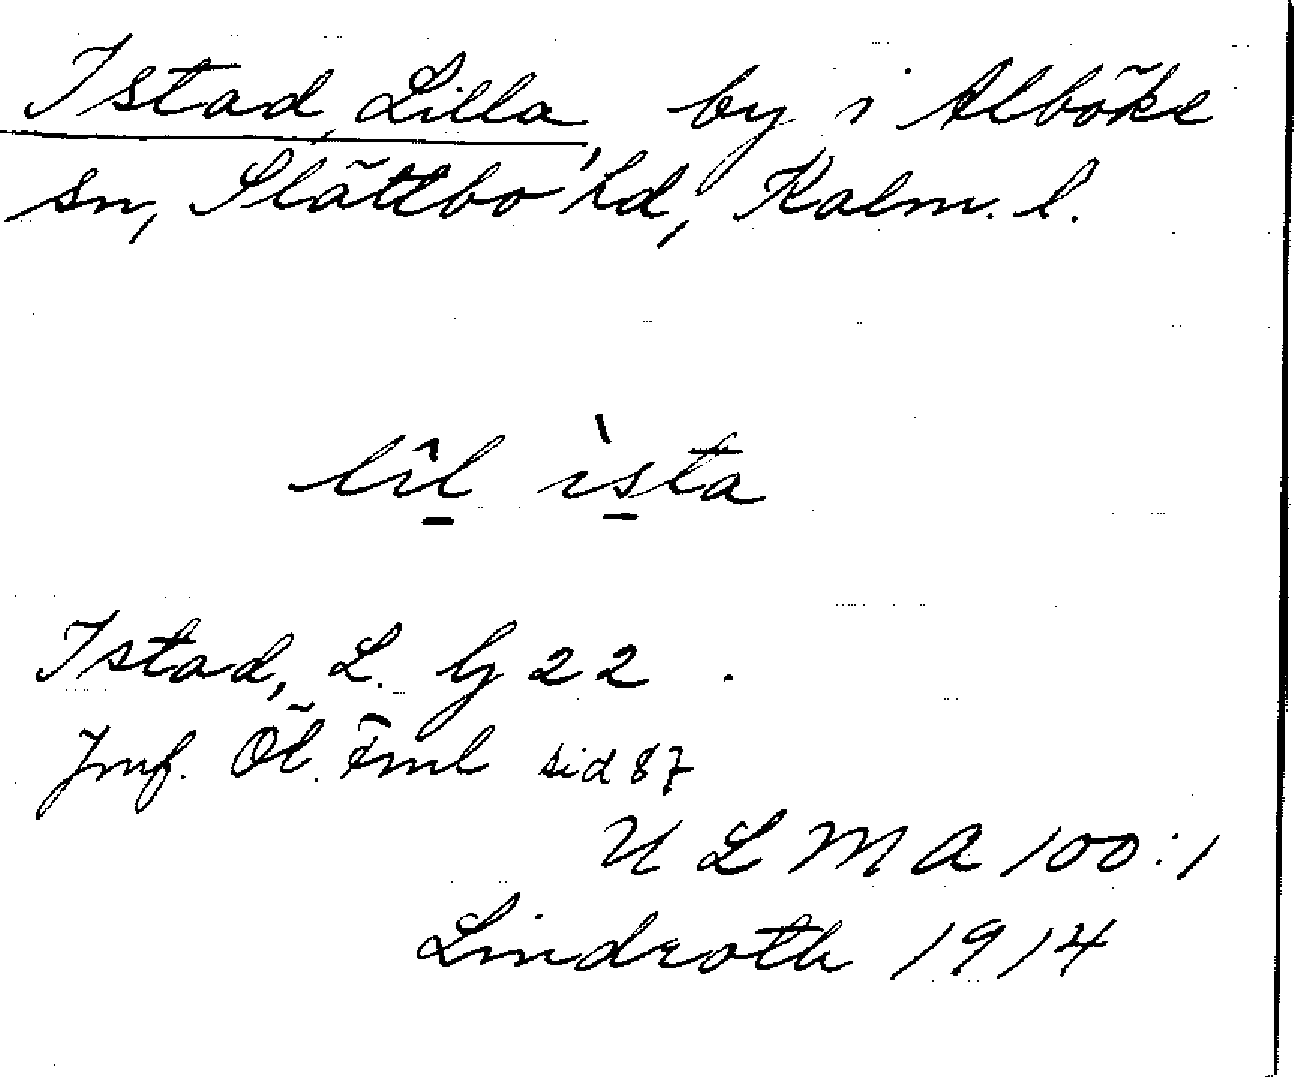 Istad, Lilla, by i Alböke
sn, Slättbo hd, Kalm. l.
lîl ìsta
Istad, L. G 22.
Jmf. Öl. Fml sid 87
ULMA 100:1
Lindroth 1914